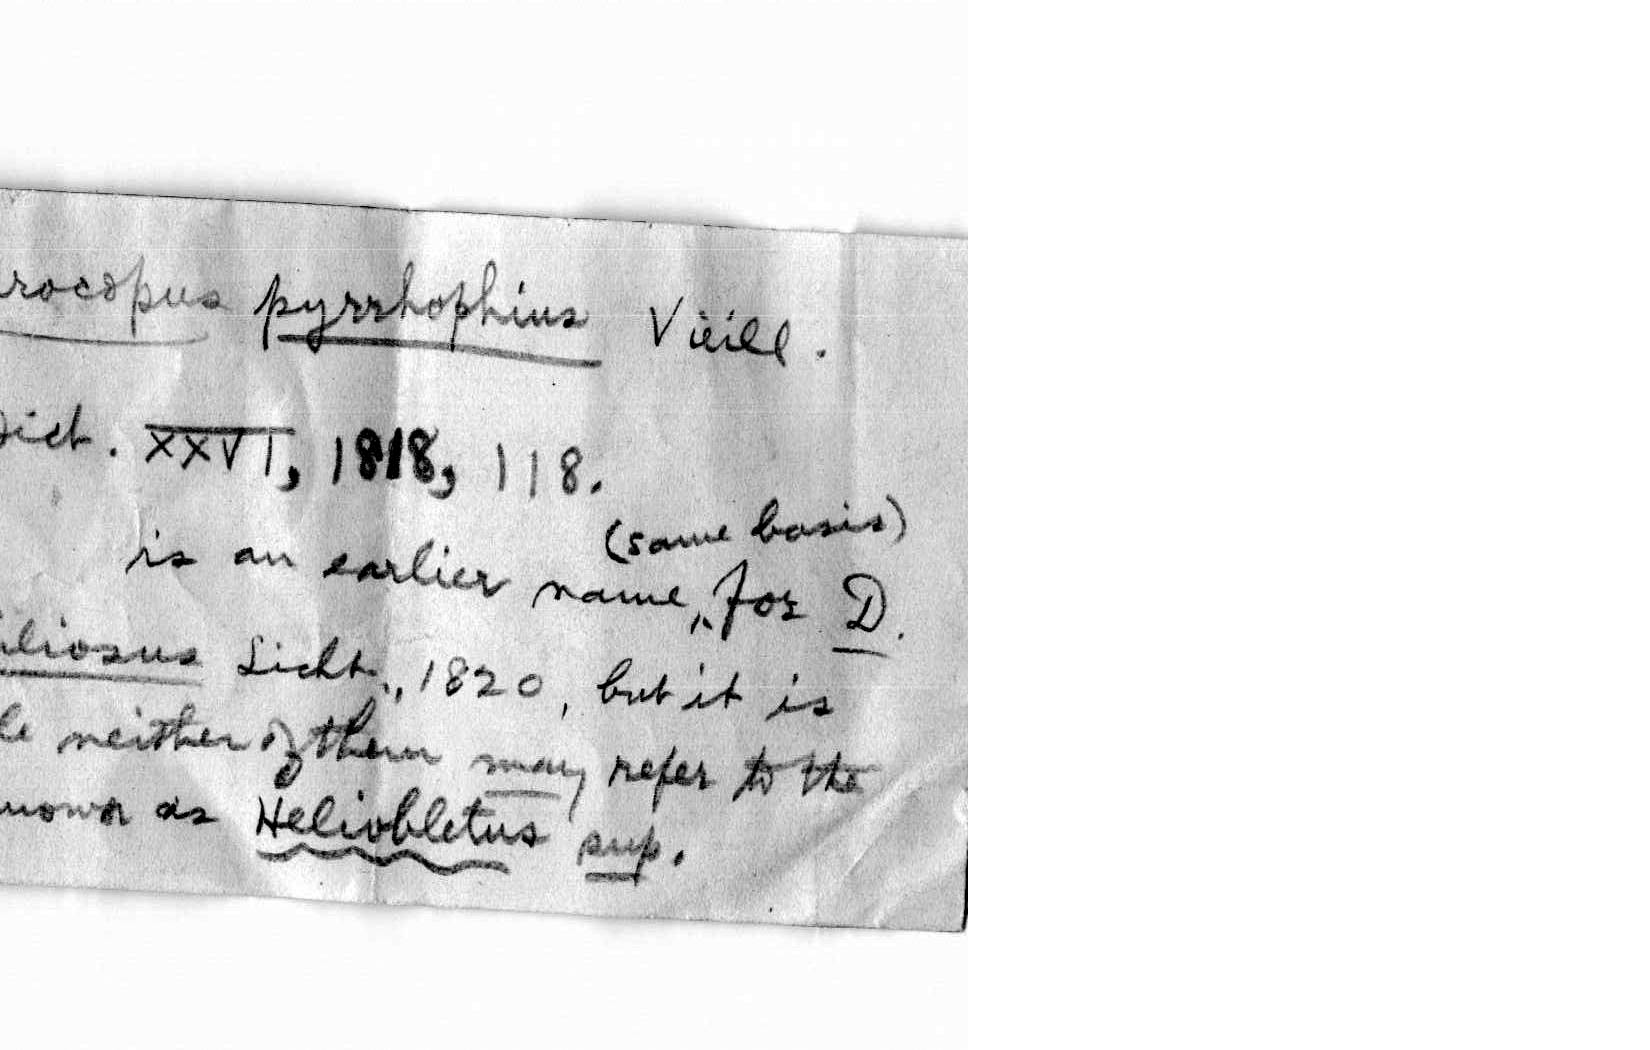 rocopus pyrrhophius Vieill.
Dict. XXVI, 1818, 118.
(same basis)
is an earlier name, for D.
iliosus Licht., 1820, but it is
le neither of them may refer to the
nown as Heliobletus sup.